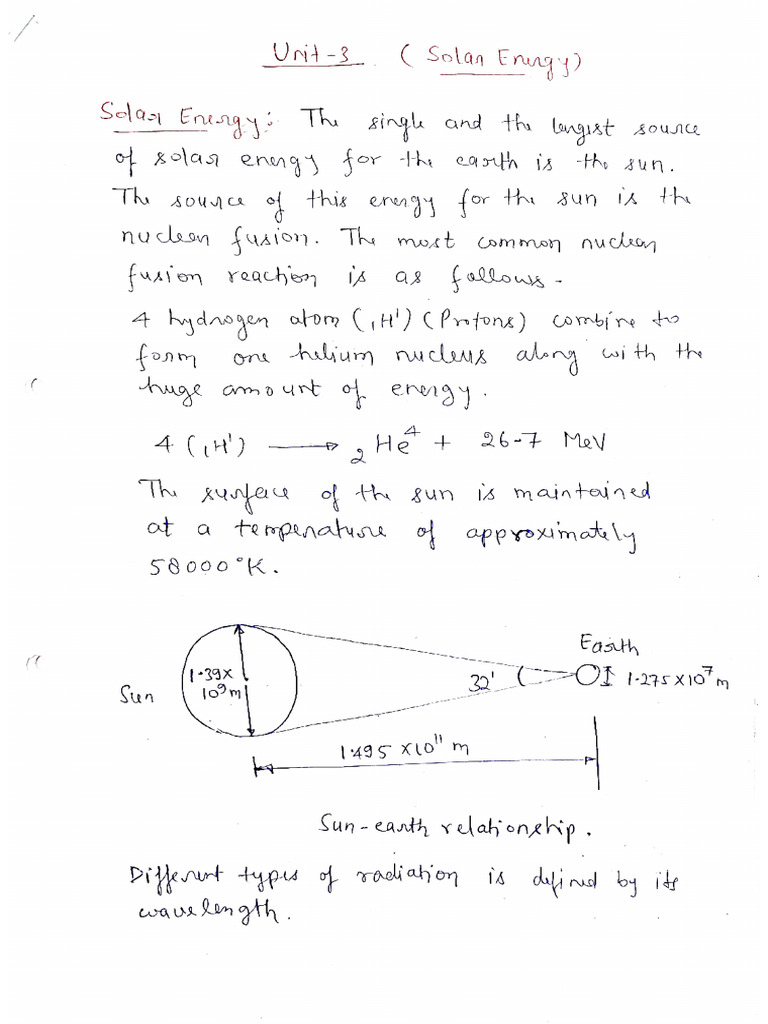 Unit-3 (Solar Energy)
Solar Energy: The single and the largest source
of solar energy for the earth is the sun.
The source of this energy for the sun is the
nuclear fusion. The most common nuclear
fusion reaction is as follows-
4 hydrogen atom (₁H¹) (Protons) combine to
form one helium nucleus along with the
huge amount of energy.
4 (₁H¹) ⟶ ₂He⁴ + 26-7 MeV
The surface of the sun is maintained
at a temperature of approximately
58000°K.
Earth
1.39x
10⁹m
32'
1.275x10⁷m
Sun
1.495 x10¹¹ m
Sun-earth relationship.
Different types of radiation is defined by its
wavelength.